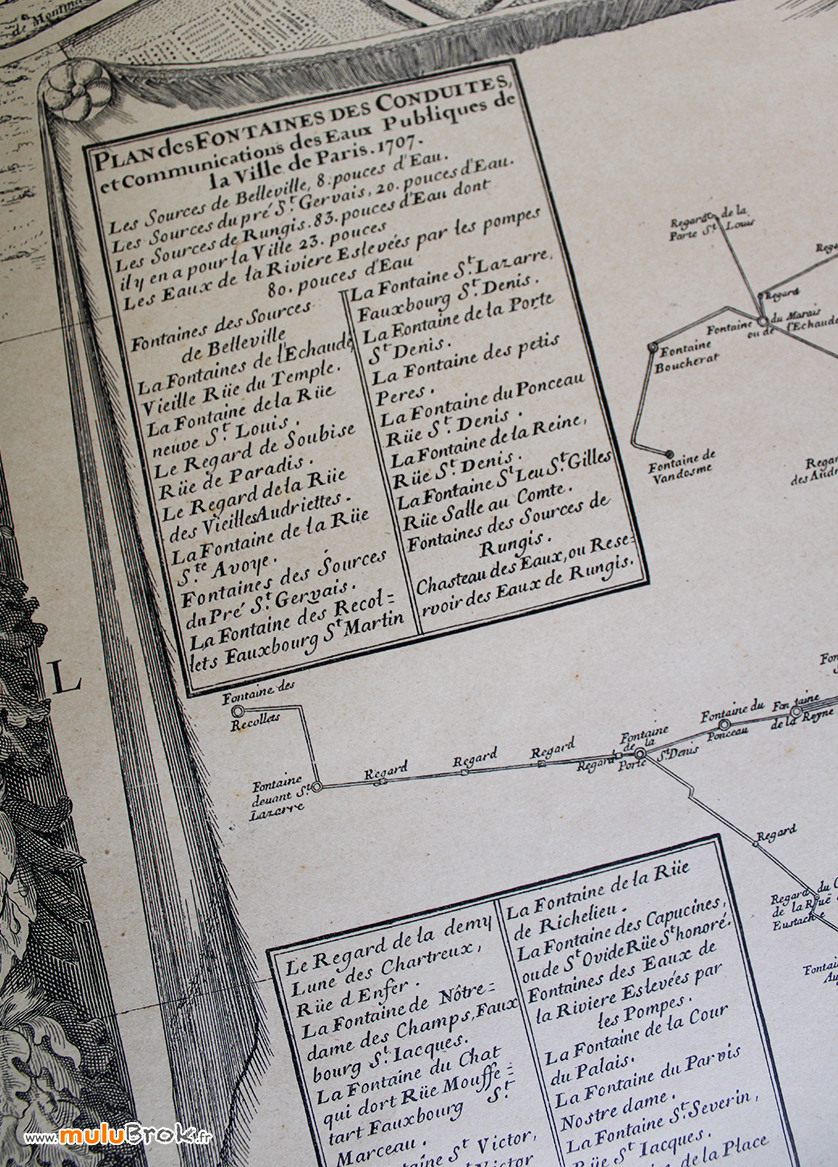 de Montma
PLAN des FONTAINES DES CONDUITES,
et Communications des Eaux Publiques de
la Ville de Paris. 1707.
Les Sources de Belleville, 8. pouces d'Eau.
Les Sources du pré St. Gervais, 20. pouces d'Eau.
Les Sources de Rungis. 83. pouces d'Eau dont
il y en a pour la Ville 23. pouces
Les Eaux de la Riviere Eslevées par les pompes
80. pouces d'Eau
Fontaines des Sources
de Belleville
La Fontaines de l'Echaudé
Vieille Rüe du Temple.
La Fontaine de la Rüe
neuve St. Louis.
Le Regard de Soubise
Rüe de Paradis.
Le Regard de la Rüe
des Vieilles Audriettes.
La Fontaine de la Rüe
Ste. Avoye.
Fontaines des Sources
du Pré St. Gervais.
La Fontaine des Recol=
lets Fauxbourg St. Martin
La Fontaine St. Lazarre,
Fauxbourg St. Denis.
La Fontaine de la Porte
St. Denis.
La Fontaine des petis
Peres.
La Fontaine du Ponceau
Rüe St. Denis.
La Fontaine de la Reine,
Rüe St. Denis.
La Fontaine St. Leu St. Gilles
Rüe Salle au Comte.
Fontaines des Sources de
Rungis.
Chasteau des Eaux, ou Rese=
rvoir des Eaux de Rungis.
Regard de la
Porte St. Louis
Rega
Regard
Fontaine du Marais
ou de l'Echaudé
Fontaine
Boucherat
Fontaine de
Vandosme
Regar
des Audr
L
Fontaine des
Recollets
Fontaine
devant St.
Lazarre
Regard
Regard
Regard
Regard
Fontaine
de la
Porte St. Denis
Fontaine du
Ponceau
Fontaine
de la Reyne
Fon
Regard
Regard du C
de la Rüe
Eustache
Fontai
Au
Le Regard de la demy
Lune des Chartreux,
Rüe d'Enfer.
La Fontaine de Nôtre=
dame des Champs, Faux
bourg St. Iacques.
La Fontaine du Chat
qui dort Rüe Mouffe=
tart Fauxbourg St.
Marceau.
aine St. Victor,
Victor
La Fontaine de la Rüe
de Richelieu.
La Fontaine des Capucines,
ou de St. Ovide Rüe St. honoré.
Fontaines des Eaux de
la Riviere Eslevées par
les Pompes.
La Fontaine de la Cour
du Palais.
La Fontaine du Parvis
Nostre dame.
La Fontaine St. Severin,
Rüe St. Iacques.
de la Place
www.muluBrok.fr